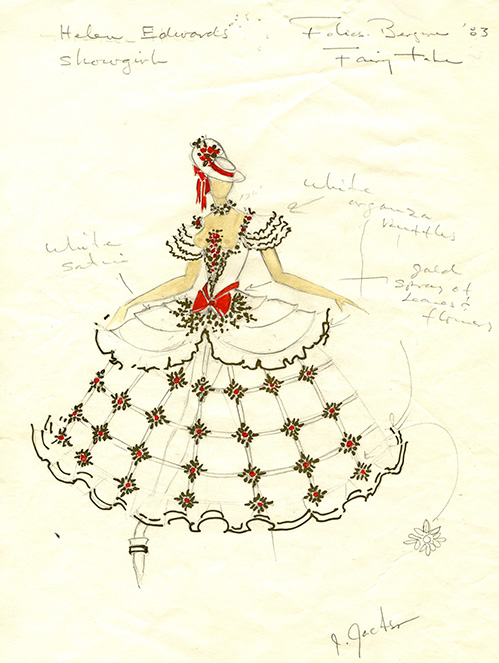 Helen Edwards
Showgirl
Folies Bergere '83
Fairy tale
white
organza
ruffles
white
satin
gold
spray of
leaves &
flowers